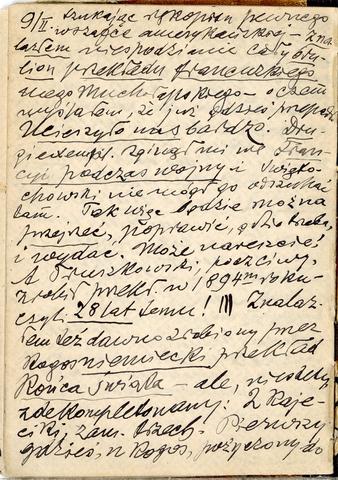 9/II. szukając rękopisu pewnego
wszczęte amerykańskiej – zna-
lazłem niespodzianie cały bru-
lion przekładu francuskiego
mego Mnicha Tajskiego – o czem
myślałem, że już gdzieś przepadł
Ucieszyło nas bardzo. Dru-
gi exempl. zginął mi we Fran-
cyi podczas wojny i Święto-
chowski nie mógł go odszukać
tam. Tak więc będzie można
przejrzeć, poprawić, gdzie trzeba,
i wydać. Może nareszcie!
A Truszkowski, poczciwy,
zrobił przekł. w 1894m roku –
czyli 28 lat temu! !!! Znalaz
łem też dawno zrobiony przez
kogoś niemiecki przekład
Końca świata – ale, niestety
zdekompletowany: 2 kaje-
ciki, zam. trzech. Pierwszy
gdzieś, u kogoś, pożyczony do